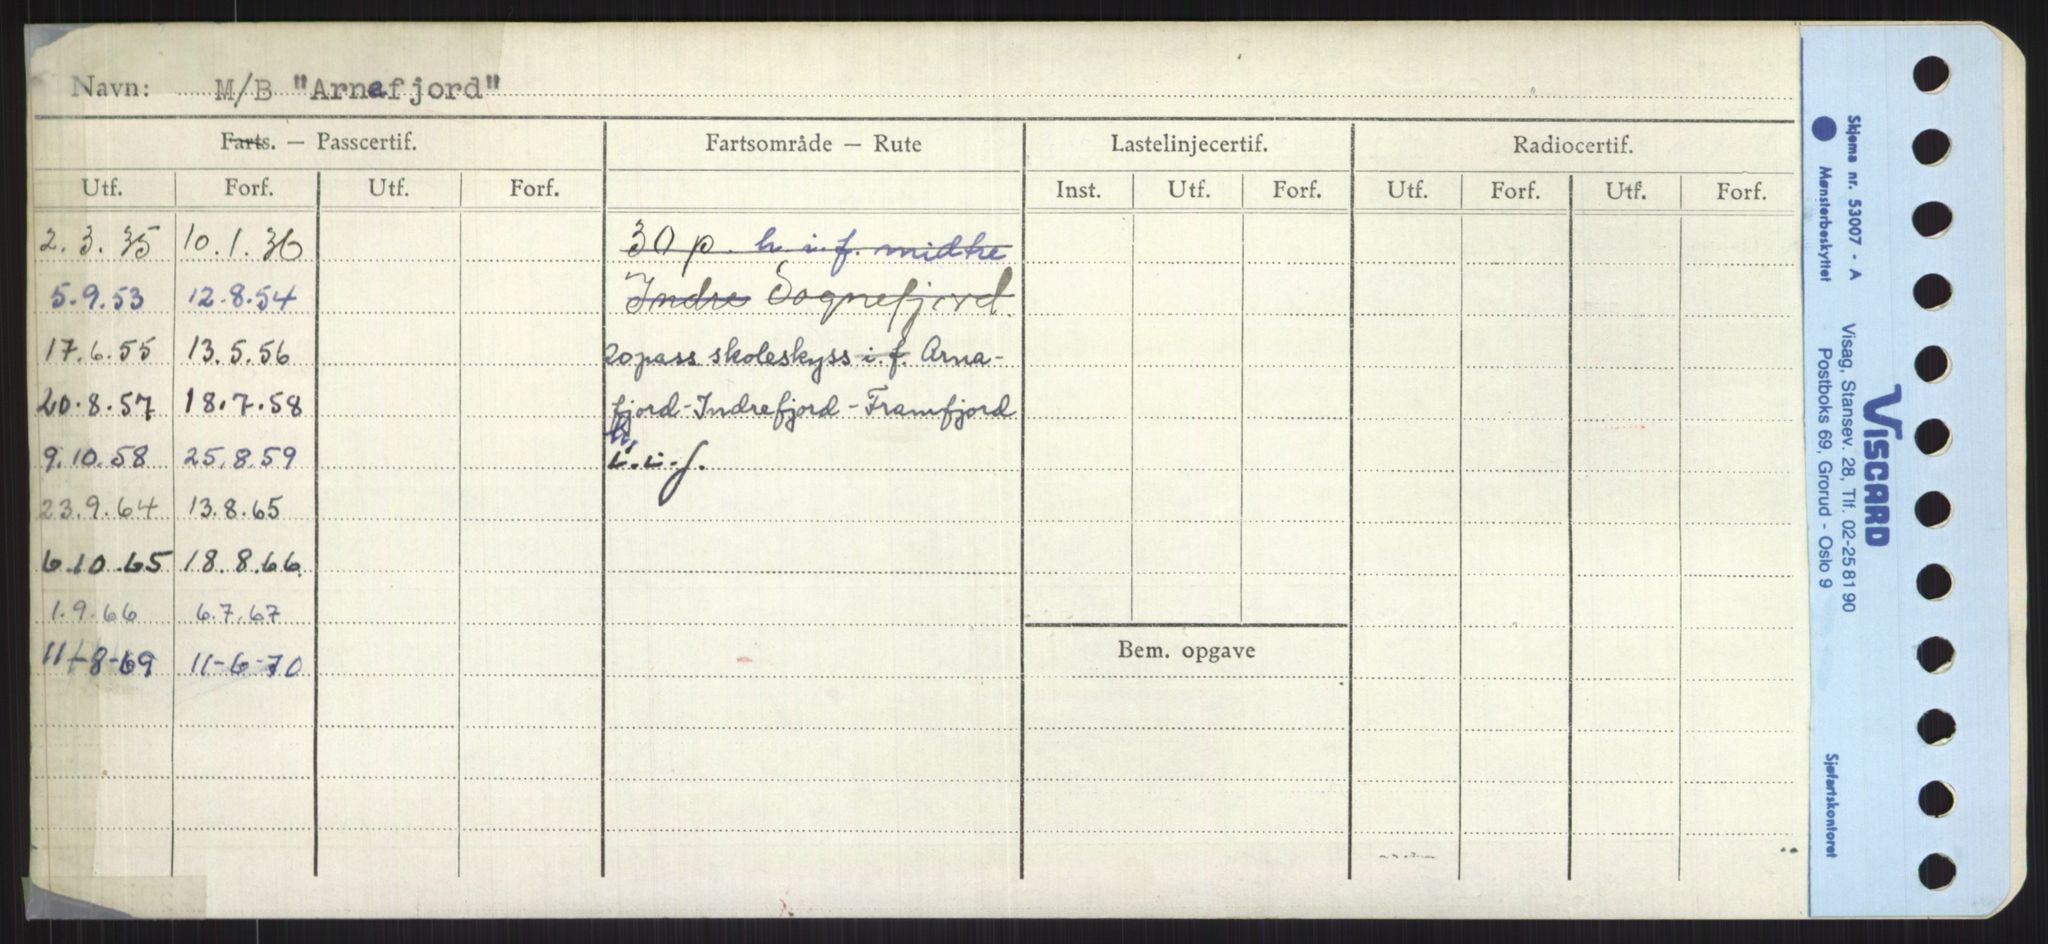 Navn: M/B "Arnafjord"
Farts. — Passcertif. Fartsområde — Rute Lastelinjecertif. Radiocertif.
Utf. Forf. Utf. Forf. Inst. Utf. Forf. Utf. Forf. Utf. Forf.
2.3.35 10.1.36 30 p. h. i. f. midtre
5.9.53 12.8.54 Indre Sognefjord.
17.6.55 13.5.56 20 pass skoleskyss i. f. Arna-
20.8.57 18.7.58 fjord-Indrefjord-Framfjord
9.10.58 25.8.59 h. i. f.
23.9.64 13.8.65
6.10.65 18.8.66
1.9.66 6.7.67
Bem. opgave
11-8-69 11-6-70
Skjema nr. 53007 - A
Mønsterbeskyttet
Visag, Stansev. 28, Tlf. 02-25 81 90
Postboks 69, Grorud - Oslo 9
VISCARD
Sjøfartskontoret